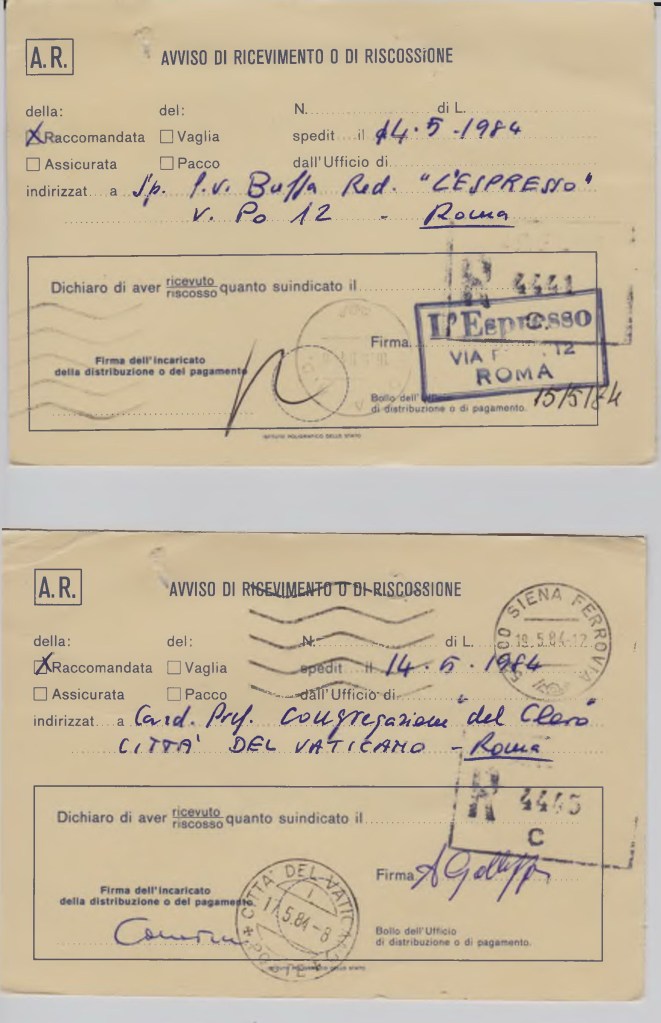 A.R. AVVISO DI RICEVIMENTO O DI RISCOSSIONE
della: del: N. di L.
X Raccomandata Vaglia spedit il 14.5.1984
Assicurata Pacco dall'Ufficio di
indirizzat a Buffa Red. "L'ESPRESSO"
v. Po 12 - Roma
R 4441
Dichiaro di aver ricevuto/riscosso quanto suindicato il
C
Firma
L'Espresso
VIA 12
ROMA
Firma dell'incaricato
della distribuzione o del pagamento
Bollo dell'Ufficio
di distribuzione o di pagamento.
15/5/84
ISTITUTO POLIGRAFICO DELLO STATO
A.R. AVVISO DI RICEVIMENTO O DI RISCOSSIONE
SIENA FERROVIA
19.5.84-12
della: del: N. di L.
X Raccomandata Vaglia spedit il 14.5.1984
Assicurata Pacco dall'Ufficio di
indirizzat a Card. Pref. Congregazione "del Clero"
CITTÀ DEL VATICANO - Roma
R 4445
C
Dichiaro di aver ricevuto/riscosso quanto suindicato il
Firma
Firma dell'incaricato
della distribuzione o del pagamento
CITTA' DEL VATICANO
17.5.84-8
POSTE
Bollo dell'Ufficio
di distribuzione o di pagamento.